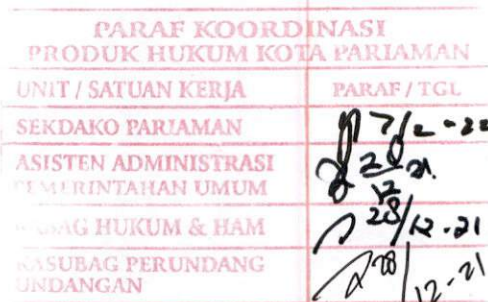 PARAF KOORDINASI
PRODUK HUKUM KOTA PARIAMAN
UNIT / SATUAN KERJA PARAF / TGL
SEKDAKO PARIAMAN 7/2-22
ASISTEN ADMINISTRASI
PEMERINTAHAN UMUM
HUKUM & HAM 28/12-21
KASUBAG PERUNDANG
UNDANGAN 28/12-21